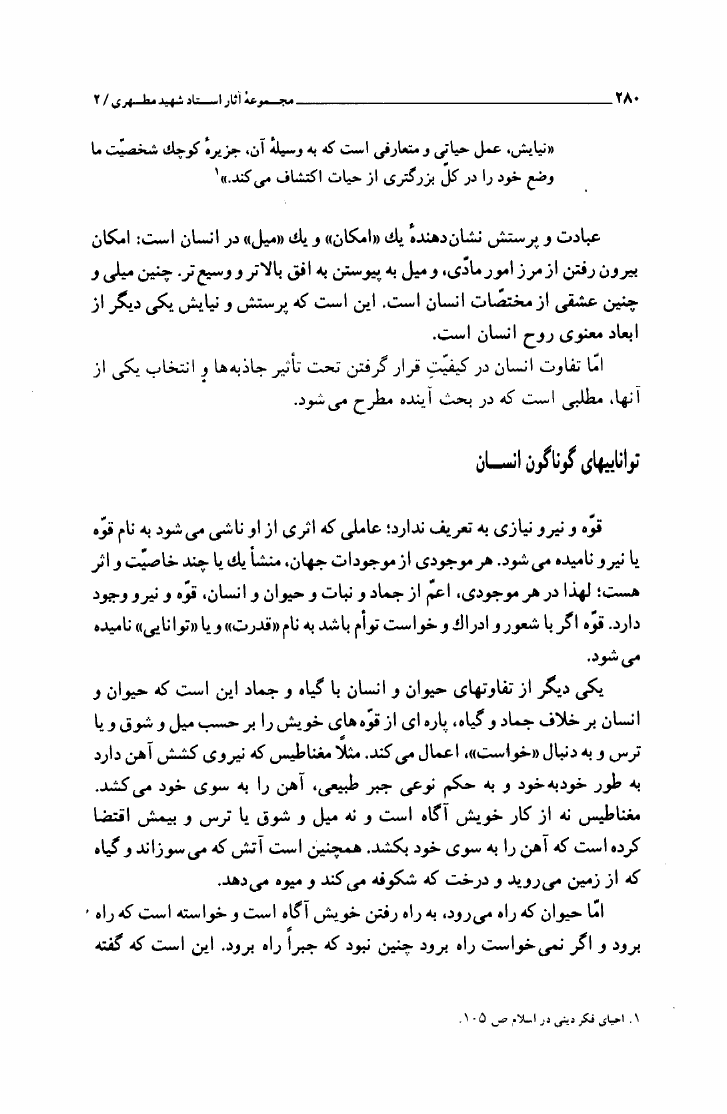 ۲۸۰ مجـموعهٔ آثار اسـتاد شهید مطـهری / ۲
«نیایش، عمل حیاتی و متعارفی است که به وسیلهٔ آن، جزیرهٔ کوچك شخصیّت ما
وضع خود را در کلّ بزرگتری از حیات اکتشاف می‌کند.»۱
عبادت و پرستش نشان‌دهندهٔ یك «امکان» و یك «میل» در انسان است: امکان
بیرون رفتن از مرز امور مادّی، و میل به پیوستن به افق بالاتر و وسیع‌تر. چنین میلی و
چنین عشقی از مختصّات انسان است. این است که پرستش و نیایش یکی دیگر از
ابعاد معنوی روح انسان است.
امّا تفاوت انسان در کیفیّتِ قرار گرفتن تحت تأثیر جاذبه‌ها و انتخاب یکی از
آنها، مطلبی است که در بحث آینده مطرح می‌شود.
تواناییهای گوناگون انسـان
قوّه و نیرو نیازی به تعریف ندارد؛ عاملی که اثری از او ناشی می‌شود به نام قوّه
یا نیرو نامیده می‌شود. هر موجودی از موجودات جهان، منشأ یك یا چند خاصیّت و اثر
هست؛ لهذا در هر موجودی، اعمّ از جماد و نبات و حیوان و انسان، قوّه و نیرو وجود
دارد. قوّه اگر با شعور و ادراك و خواست توأم باشد به نام «قدرت» و یا «توانایی» نامیده
می‌شود.
یکی دیگر از تفاوتهای حیوان و انسان با گیاه و جماد این است که حیوان و
انسان بر خلاف جماد و گیاه، پاره‌ای از قوّه‌های خویش را بر حسب میل و شوق و یا
ترس و به دنبال «خواست»، اعمال می‌کند. مثلاً مغناطیس که نیروی کشش آهن دارد
به طور خودبه‌خود و به حکم نوعی جبر طبیعی، آهن را به سوی خود می‌کشد.
مغناطیس نه از کار خویش آگاه است و نه میل و شوق یا ترس و بیمش اقتضا
کرده است که آهن را به سوی خود بکشد. همچنین است آتش که می‌سوزاند و گیاه
که از زمین می‌روید و درخت که شکوفه می‌کند و میوه می‌دهد.
امّا حیوان که راه می‌رود، به راه رفتن خویش آگاه است و خواسته است که راه
برود و اگر نمی‌خواست راه برود چنین نبود که جبراً راه برود. این است که گفته
۱. احیای فکر دینی در اسلام ص ۱۰۵.